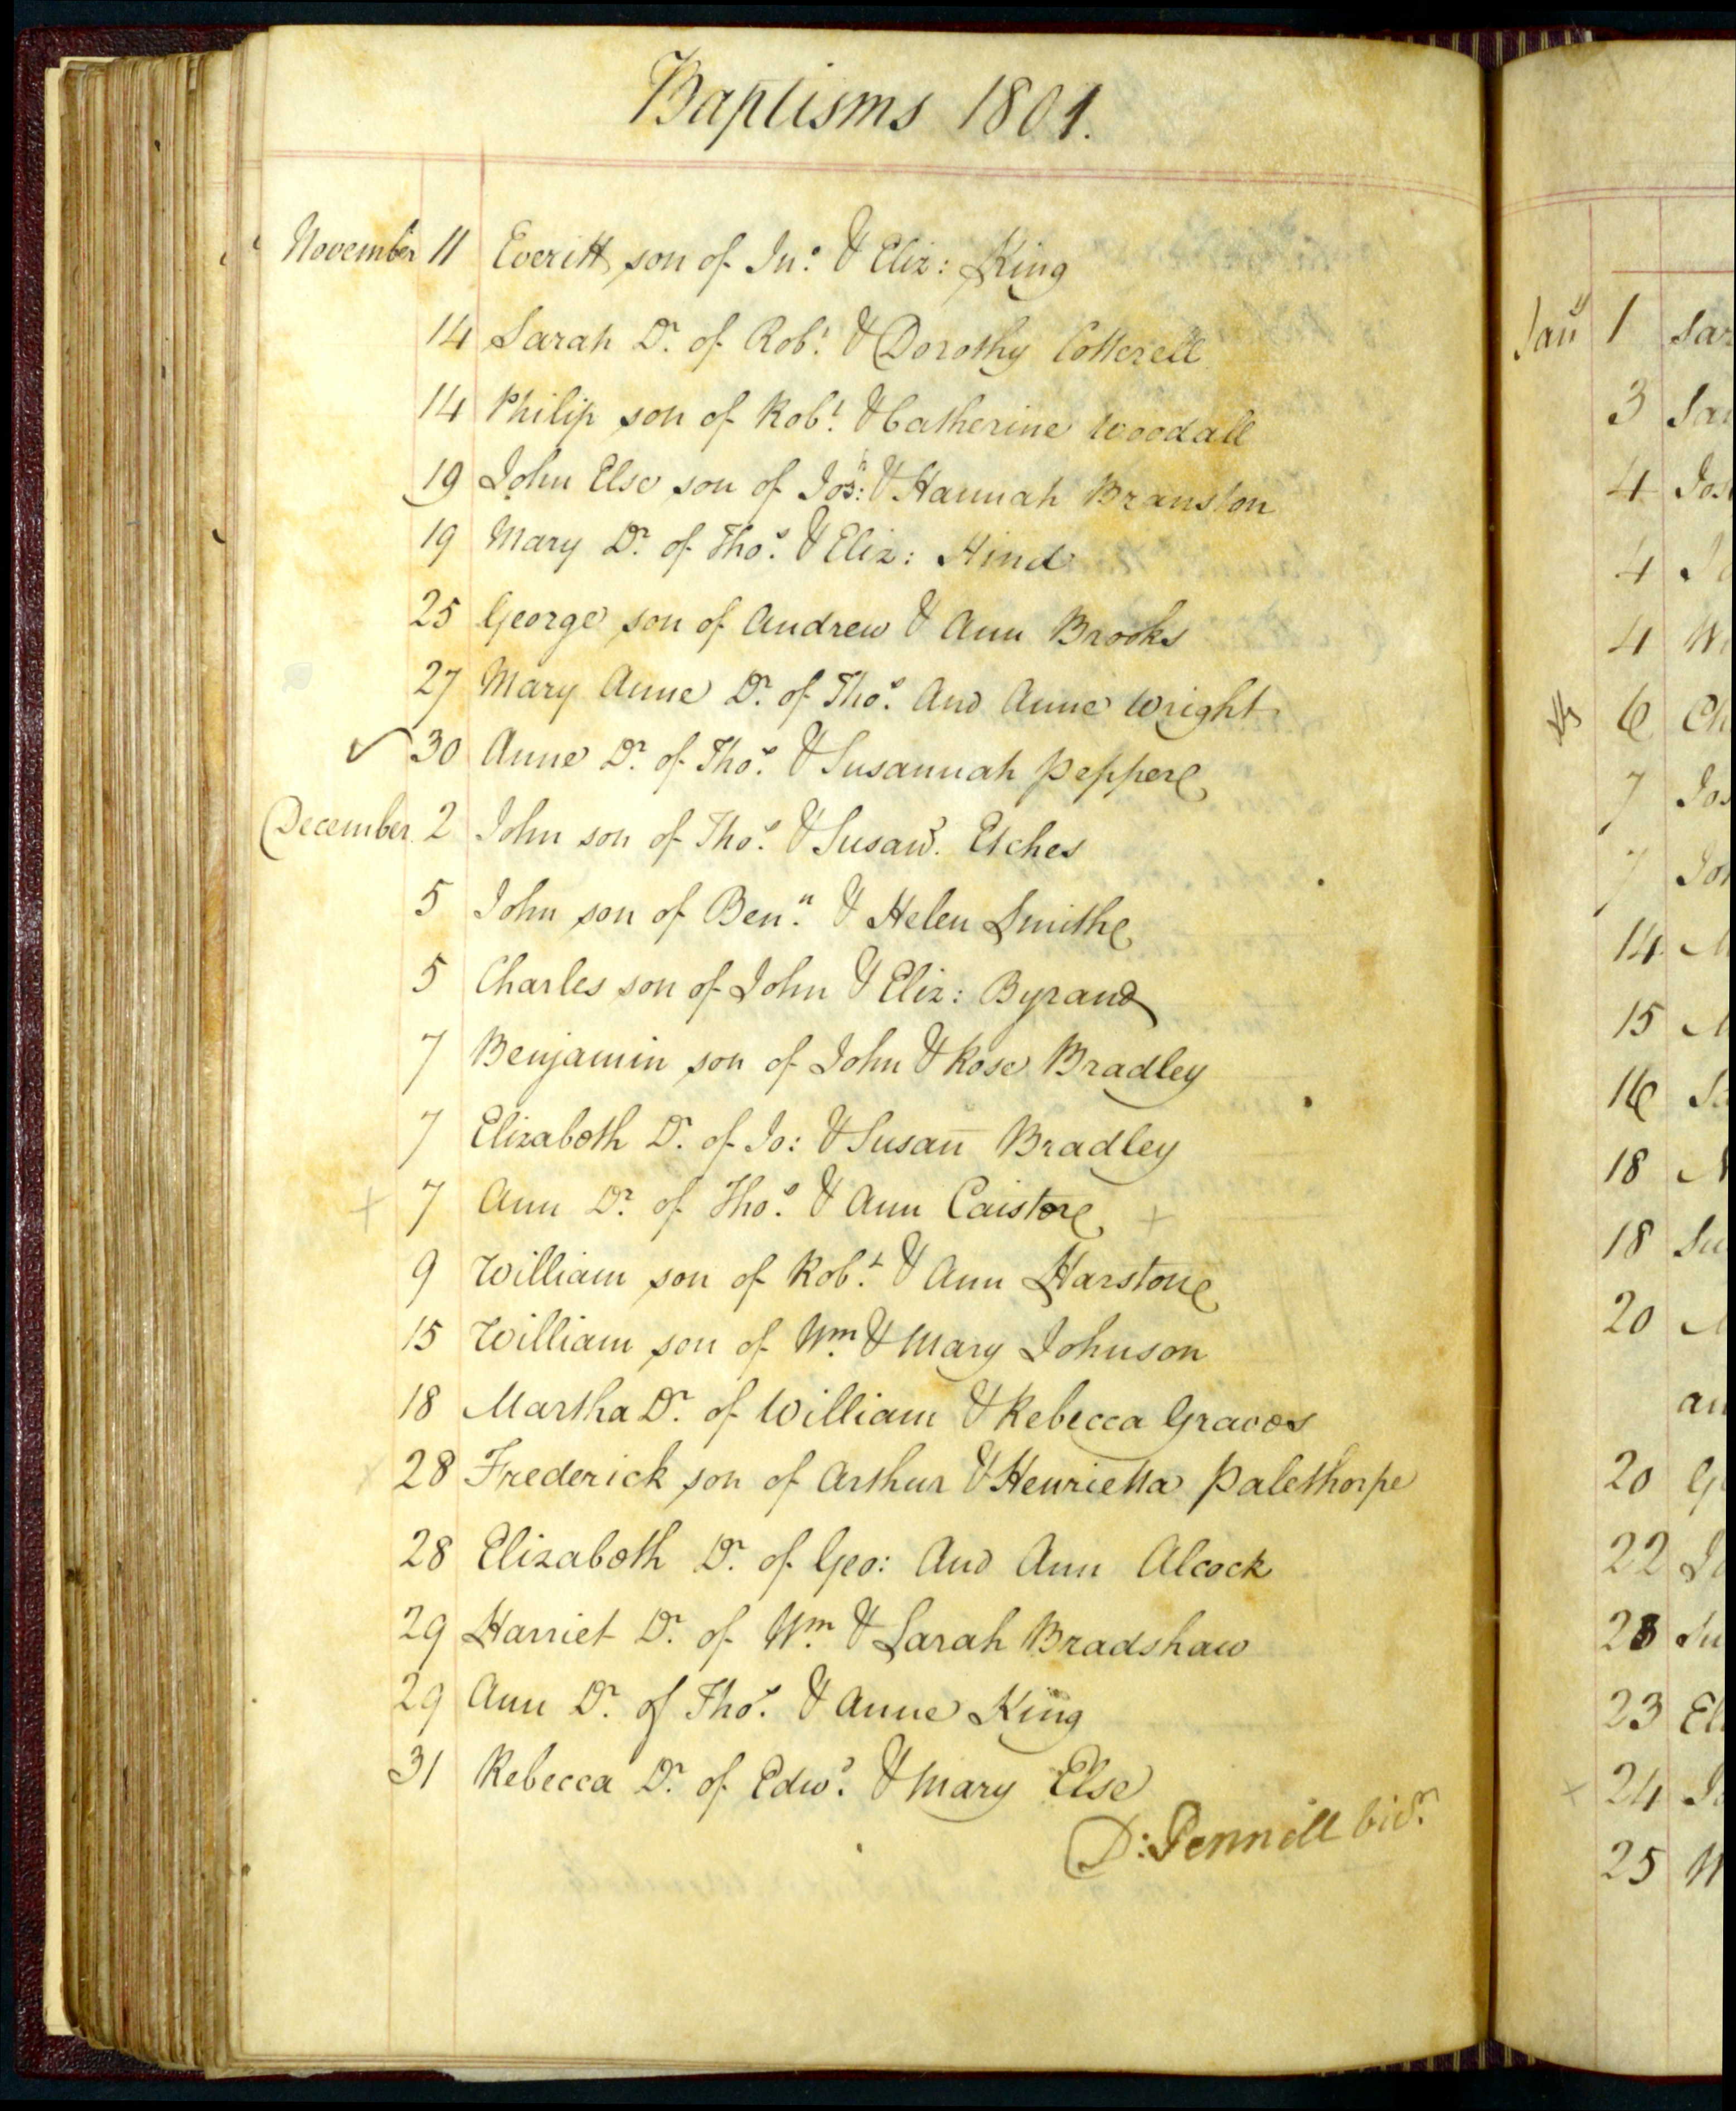 Baptisms 1801.
November 11 Everitt son of Jno. & Eliz: King
14 Sarah Dr. of Robt. & Dorothy Cotterell
14 Philip son of Robt. & Catherine Woodall
19 John Else son of Josh: & Hannah Branston
19 Mary Dr. of Thos. & Eliz: Hind
25 George son of Andrew & Ann Brooks
27 Mary Anne Dr. of Thos. And Anne Wright
30 Anne Dr. of Thos. & Susannah Pepper
December 2 John son of Thos. & Susan. Etches
5 John son of Benn. & Helen Smith
5 Charles son of John & Eliz: Byran
7 Benjamin son of John & Rose Bradley
7 Elizabeth Dr. of Jo: & Susan Bradley
+ 7 Ann Dr. of Thos. & Ann Caistor +
9 William son of Robt. & Ann Harston
15 William son of Wm. & Mary Johnson
18 Martha Dr. of William & Rebecca Graves
28 Frederick son of Arthur & Henrietta Palethorpe
28 Elizabeth Dr. of Geo: And Ann Alcock
29 Harriet Dr. of Wm. & Sarah Bradshaw
29 Ann Dr. of Thos. & Anne King
31 Rebecca Dr. of Edwd. & Mary Else
D: Pennell
Jany 1
3
4
4
4
6
7
7
14
15
16
18
18
20
20
22
23
23
24
25